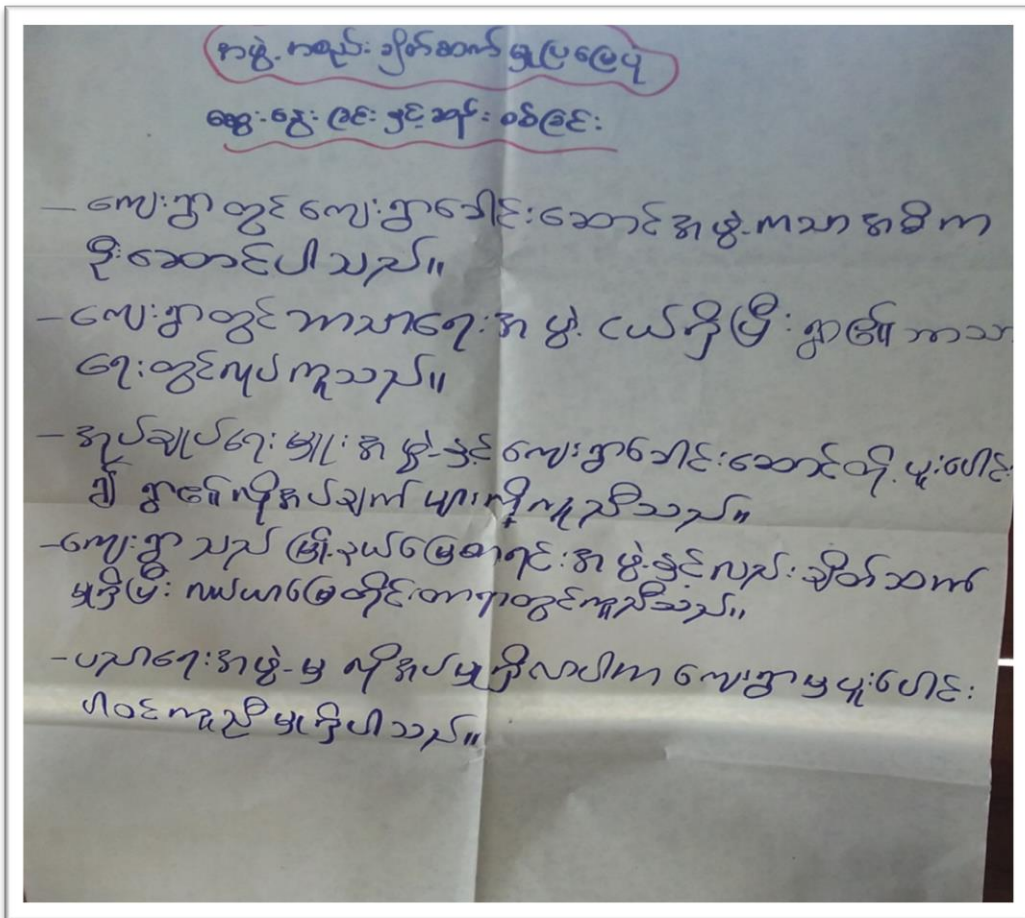 အဖွဲ့အစည်းချိတ်ဆက်မှုပြမြေပုံ
ဆွေးနွေးခြင်းနှင့်ဆန်းစစ်ခြင်း
– ကျေးရွာတွင် ကျေးရွာခေါင်းဆောင်အဖွဲ့ကသာ အဓိက
ဦးဆောင်ပါသည်။
– ကျေးရွာတွင်ဘာသာရေးအဖွဲ့ ငယ်ရှိပြီး ရွာ၏ ဘာသာ
ရေးတွင်လုပ်ကူသည်။
– အုပ်ချုပ်ရေးမှူးအဖွဲ့နှင့် ကျေးရွာခေါင်းဆောင်တို့ ပူးပေါင်း
၍ ရွာ၏လိုအပ်ချက်များကိုကူညီသည်။
– ကျေးရွာသည် မြို့နယ်မြေစာရင်းအဖွဲ့နှင့်လည်း ချိတ်ဆက်
မှုရှိပြီး လယ်ယာမြေတိုင်းတာရာတွင်ကူညီသည်။
– ပညာရေးအဖွဲ့မှ လိုအပ်မှုရှိလာပါက ကျေးရွာမှပူးပေါင်း
ပါဝင်ကူညီမှုရှိပါသည်။